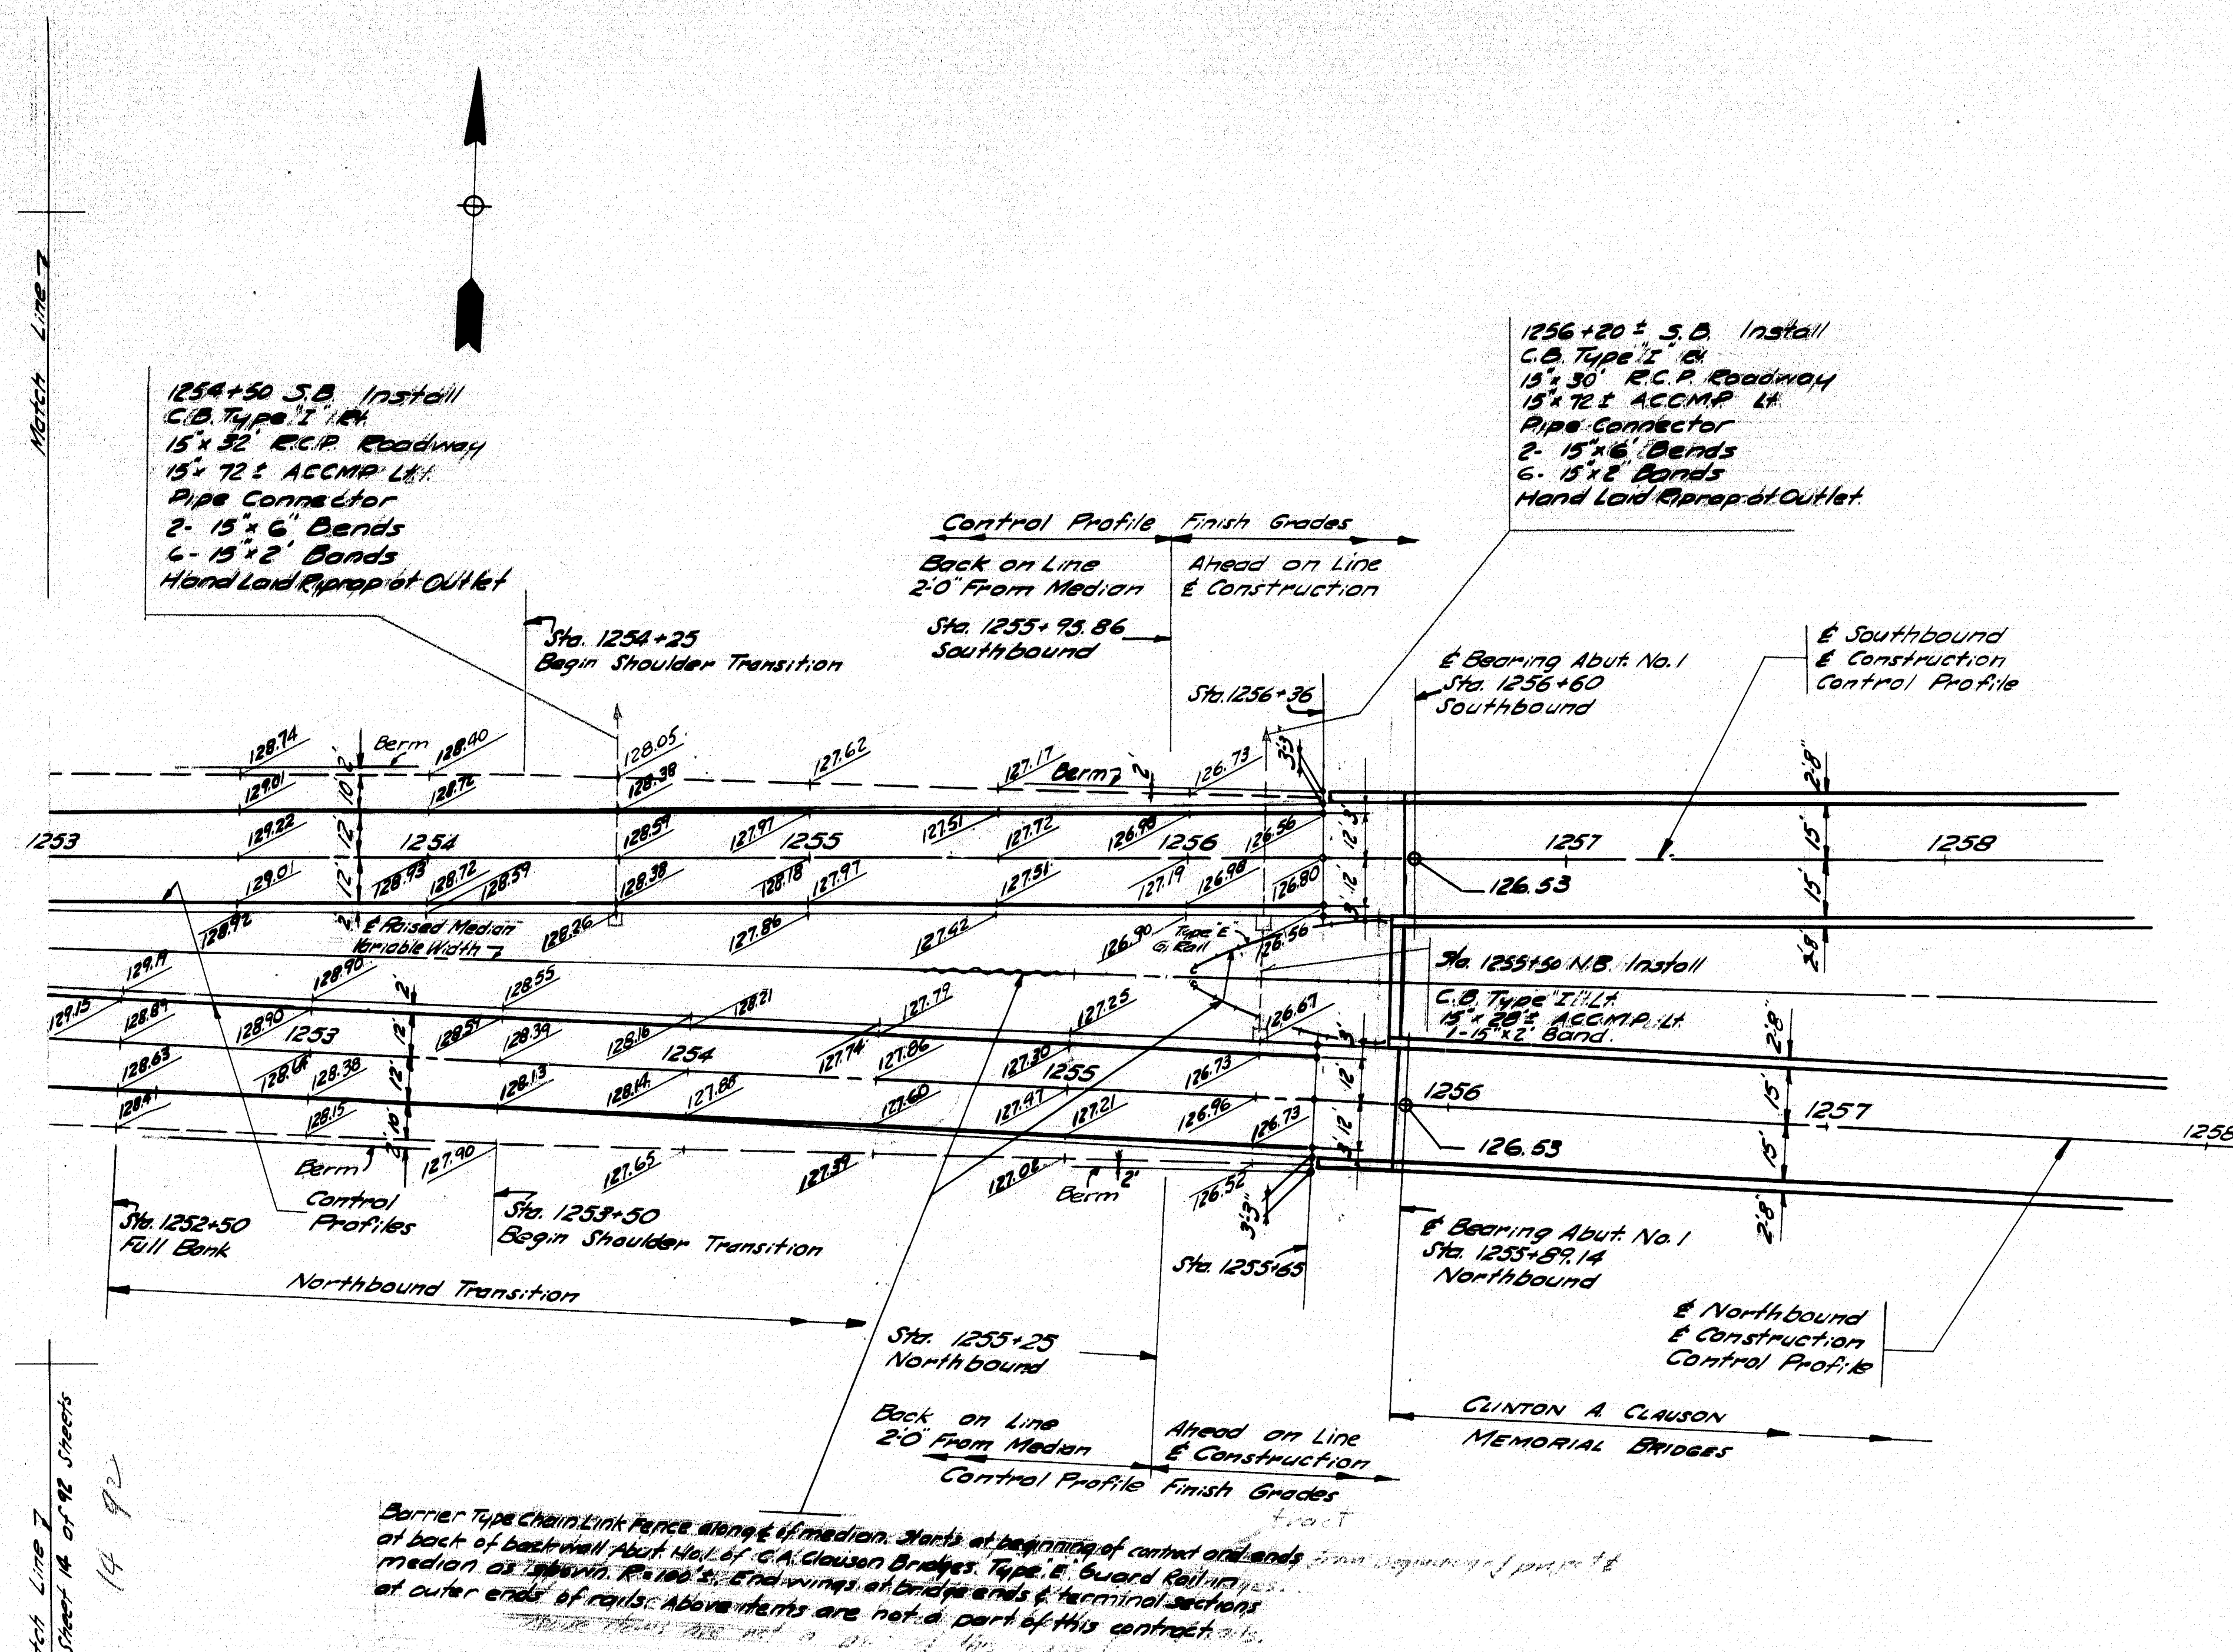 Match Line
1254+50 S.B. Install
C.B. Type "I" Rt.
15"x 32' R.C.P. Roadway
15"x 72'± ACCMP Lt.
Pipe Connector
2- 15"x 6' Bends
6- 15"x 2' Bands
Hand Laid Riprap at Outlet
1256+20± S.B. Install
C.B. Type "I" Rt.
15"x 30' R.C.P. Roadway
15"x 72± ACCMP Lt.
Pipe Connector
2- 15"x 6' Bends
6- 15"x 2' Bands
Hand Laid Riprap at Outlet.
Control Profile Finish Grades
Back on Line
2'-0" From Median
Ahead on Line
℄ Construction
Sta. 1254+25
Begin Shoulder Transition
Sta. 1255+95.86
Southbound
Sta. 1256+36
℄ Bearing Abut. No. 1
Sta. 1256+60
Southbound
℄ Southbound
℄ Construction
Control Profile
128.74 Berm 128.40 128.05 127.62 127.17 Berm 2' 126.73 3'3" 2'8"
129.01 10' 2' 128.72 128.38
129.22 12' 128.59 127.97 127.51 127.72 126.98 126.56 12' 3' 15'
1253 1254 1255 1256 1257 1258
129.01 12' 128.93 128.72 128.59 128.38 128.18 127.97 127.51 127.19 126.98 126.80 12' 3' 126.53 15'
128.92 2' 128.26 127.86 127.42 126.90 126.56 2'8"
℄ Raised Median
Variable Width
Type "E"
G. Rail
Sta. 1255+50 N.B. Install
C.B. Type "I" Lt.
15"x 28'± ACCMP. Lt.
1-15"x 2' Band.
129.19 128.90 2' 128.55 128.21 127.79 127.25 126.67
129.15 128.89 128.90 12' 128.59 128.39 128.16 127.74 127.86 127.30 126.73 3' 2'8"
1253 1254 1255 1256 1257 1258
128.63 128.64 128.38 12' 128.13 128.14 127.88 127.60 127.47 127.21 126.96 126.73 12' 12' 3' 15' 15'
128.41 128.15 10' 2' 126.53
Berm 127.90 127.65 127.39 127.06 Berm 2' 126.52 3'3" 2'8"
Control
Profiles
Sta. 1252+50
Full Bank
Sta. 1253+50
Begin Shoulder Transition
℄ Bearing Abut. No. 1
Sta. 1255+89.14
Northbound
Sta. 1255+65
Northbound Transition
Sta. 1255+25
Northbound
℄ Northbound
℄ Construction
Control Profile
Back on Line
2'-0" From Median
Ahead on Line
℄ Construction
Control Profile Finish Grades
CLINTON A. CLAUSON
MEMORIAL BRIDGES
Barrier Type Chain Link Fence along ℄ of median. Starts at beginning of contract and ends
at back of backwall Abut. No. 1 of C.A. Clauson Bridges. Type "E" Guard Rail in
median as shown. R=100'±. End wings at bridge ends & terminal sections
at outer ends of rails. Above items are not a part of this contract.
tract
Match Line
Sheet 14 of 92 Sheets
14 92